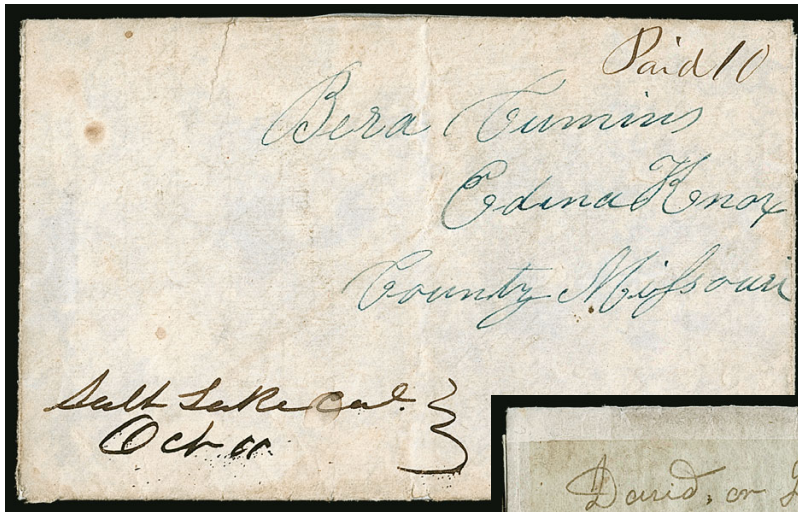 Paid 10
Bera Cumins
Edina Knox
County Missouri
Salt Lake Cal.
Oct 11
David, or